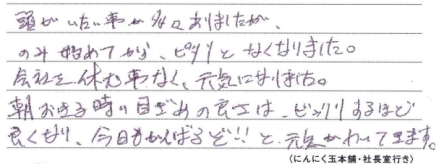 頭がいたい事が多々ありましたが、
のみ始めてから、ピタリとなくなりました。
会社を休む事なく、元気になりました。
朝おきる時の目ざめの良さは、ビックリするほど
良くなり、今日もがんばるぞ!!と、元気がわいてきます。
(にんにく玉本舗・社長室行き)